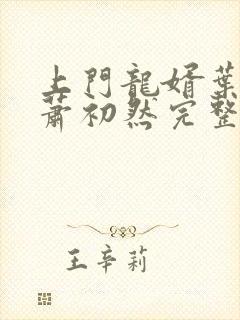 上門龍婿葉
蕭初然完整
王辛莉